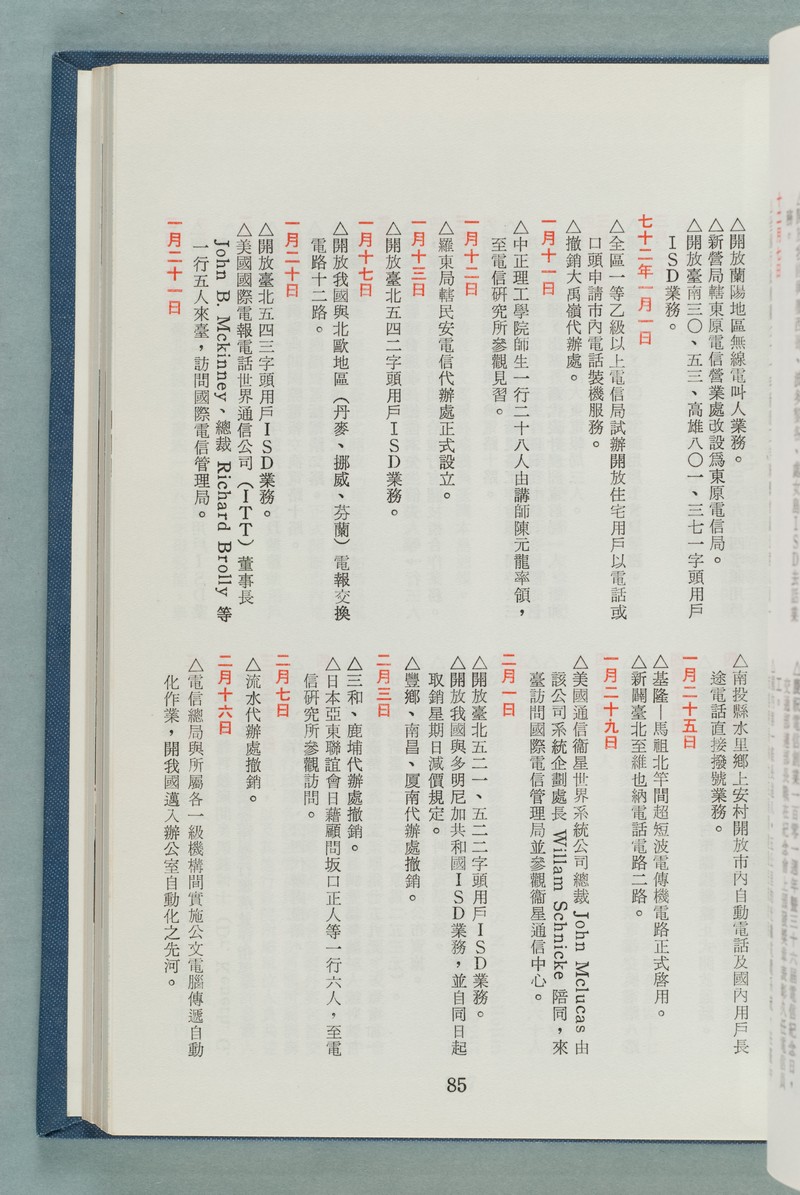 △開放蘭陽地區無線電叫人業務。
△新營局轄東原電信營業處改設爲東原電信局。
△開放臺南三〇、五三、高雄八〇一、三七一字頭用戶
ＩＳＤ業務。
七十二年一月一日
△全區一等乙級以上電信局試辦開放住宅用戶以電話或
口頭申請市內電話裝機服務。
△撤銷大禹嶺代辦處。
一月十一日
△中正理工學院師生一行二十八人由講師陳元龍率領，
至電信研究所參觀見習。
一月十二日
△羅東局轄民安電信代辦處正式設立。
一月十三日
△開放臺北五四二字頭用戶ＩＳＤ業務。
一月十七日
△開放我國與北歐地區（丹麥、挪威、芬蘭）電報交換
電路十二路。
一月二十日
△開放臺北五四三字頭用戶ＩＳＤ業務。
△美國國際電報電話世界通信公司（ＩＴＴ）董事長
John B. Mckinney、總裁 Richard Brolly 等
一行五人來臺，訪問國際電信管理局。
一月二十一日
△南投縣水里鄉上安村開放市內自動電話及國內用戶長
途電話直接撥號業務。
一月二十五日
△基隆—馬祖北竿間超短波電傳機電路正式啓用。
△新闢臺北至維也納電話電路二路。
一月二十九日
△美國通信衞星世界系統公司總裁 John Mclucas 由
該公司系統企劃處長 Willam Schnicke 陪同，來
臺訪問國際電信管理局並參觀衞星通信中心。
二月一日
△開放臺北五二一、五二二字頭用戶ＩＳＤ業務。
△開放我國與多明尼加共和國ＩＳＤ業務，並自同日起
取銷星期日減價規定。
△豐鄉、南昌、厦南代辦處撤銷。
二月三日
△三和、鹿埔代辦處撤銷。
△日本亞東聯誼會日藉顧問坂口正人等一行六人，至電
信研究所參觀訪問。
二月七日
△流水代辦處撤銷。
二月十六日
△電信總局與所屬各一級機構間實施公文電腦傳遞自動
化作業，開我國邁入辦公室自動化之先河。
85